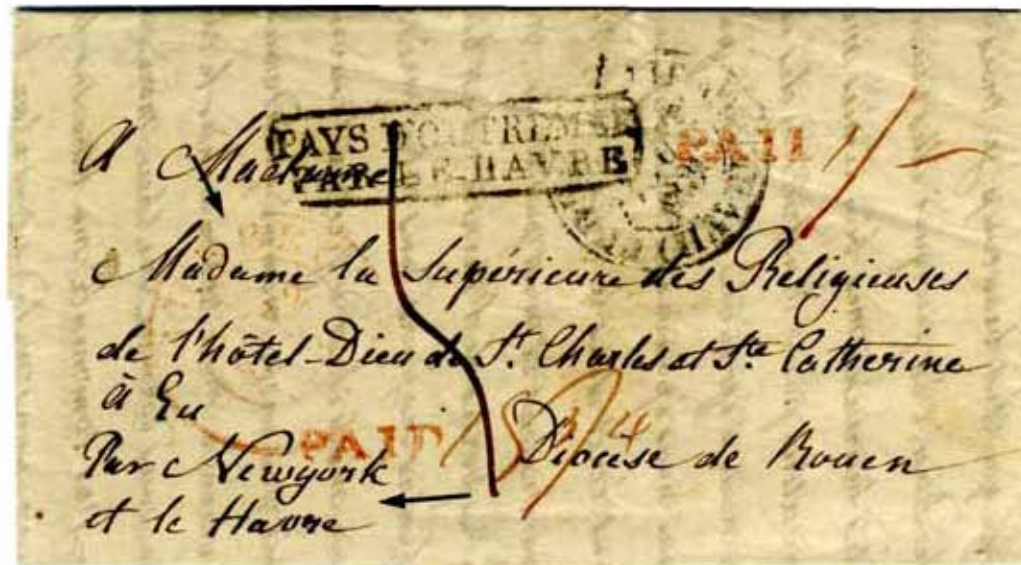 PAYS D'OUTREMER
PAR LE HAVRE
PAID
A Madame
Madame la Supérieure des Religieuses
de l'hôtel-Dieu de St. Charles et Ste Catherine
à Eu
PAID
Diocèse de Rouen
Par Newyork
et le Havre